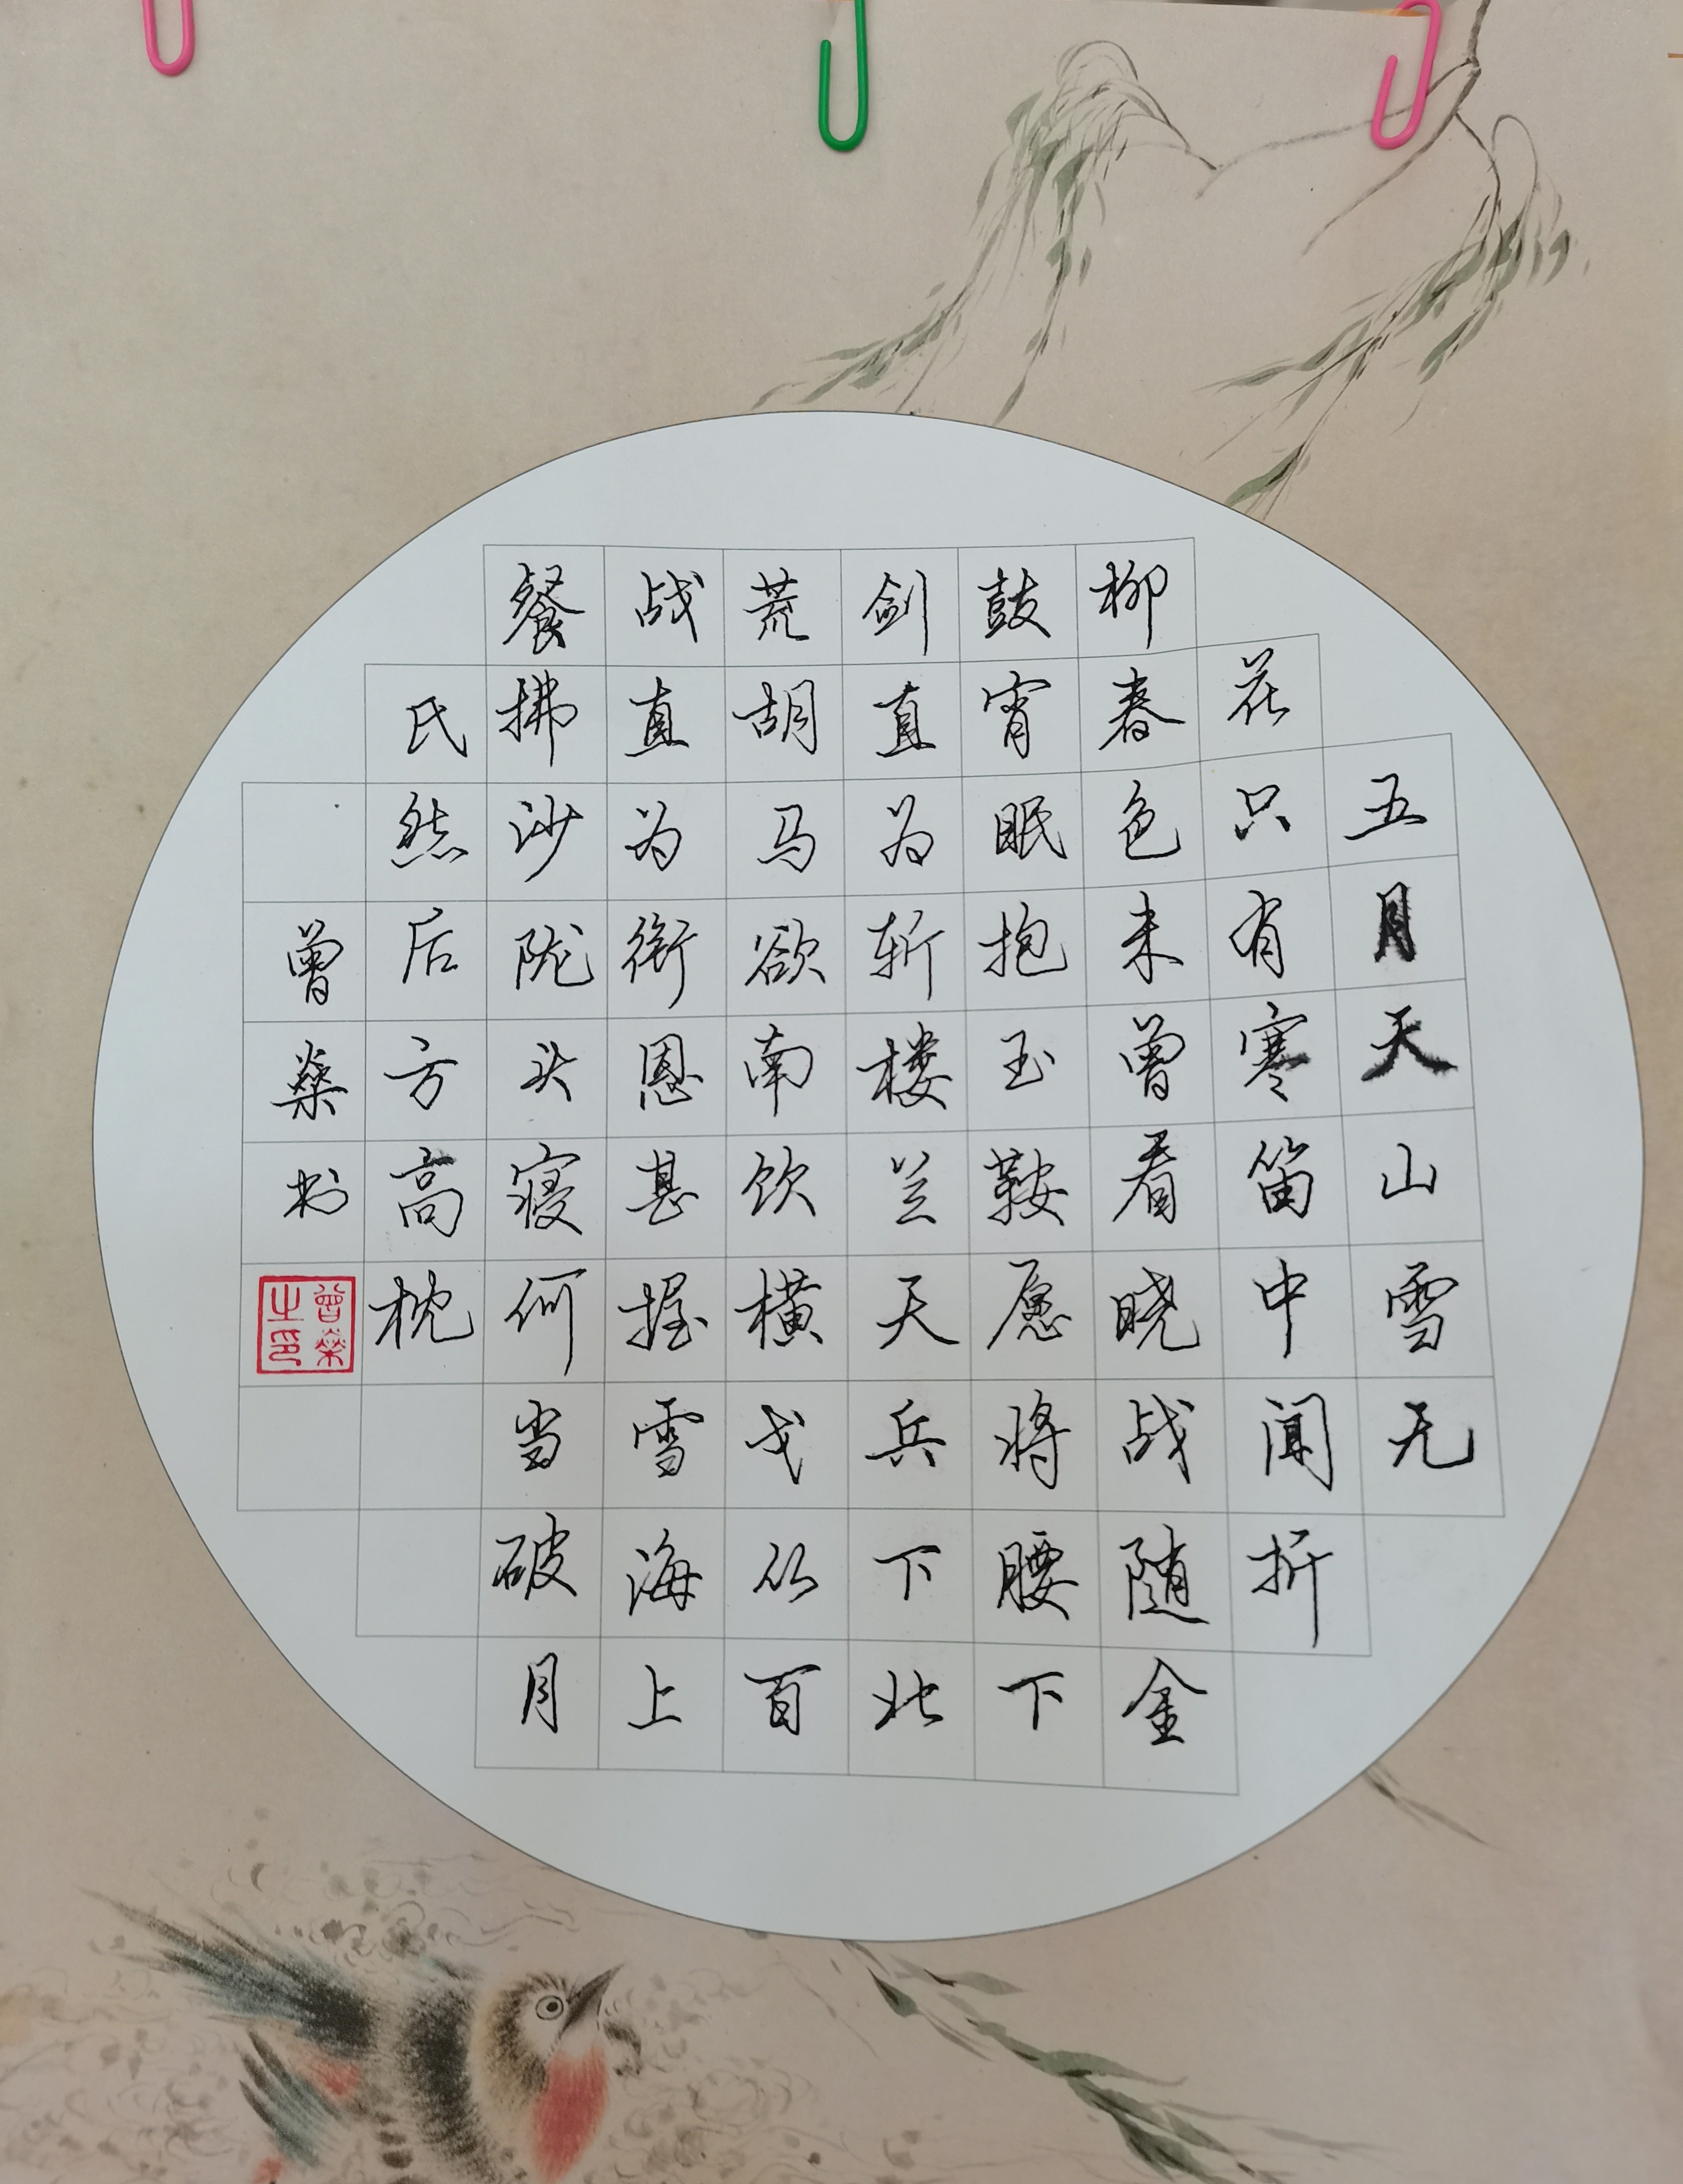 五月天山雪无
花只有寒笛中闻折
柳春色未曾看晓战随金
鼓宵眠抱玉鞍愿将腰下
剑直为斩楼兰天兵下北
荒胡马欲南饮横戈从百
战直为衔恩甚握雪海上
餐拂沙陇头寝何当破月
氏然后方高枕
曾燊
曾燊之印